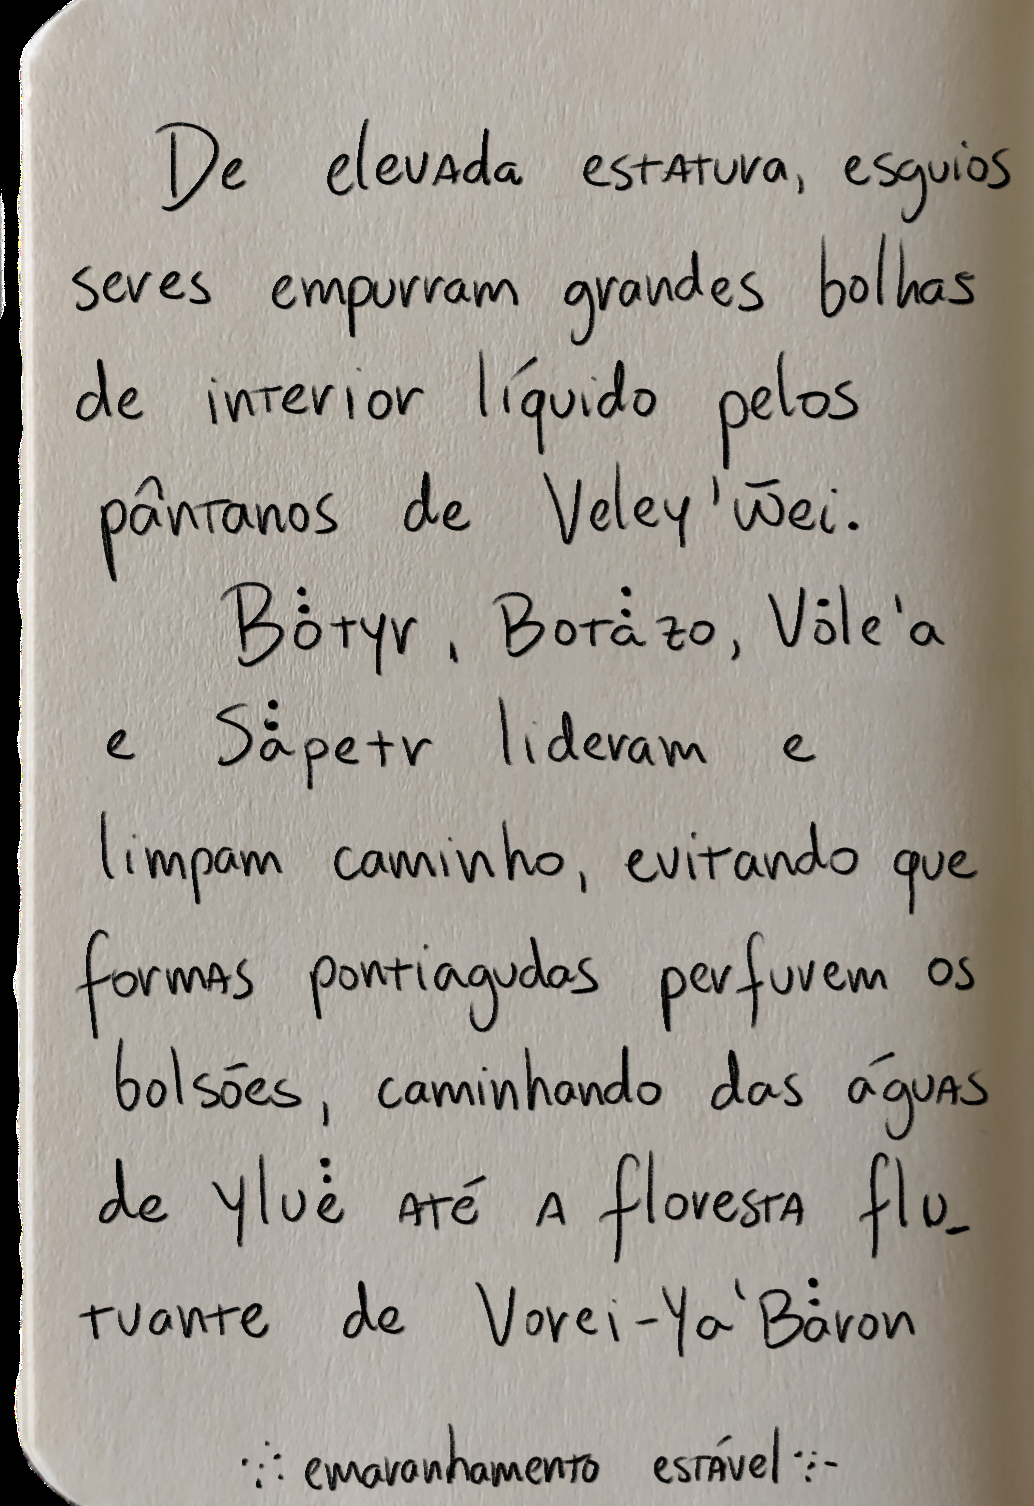 De elevada estatura, esguios
seres empurram grandes bolhas
de interior líquido pelos
pântanos de Veley'w̄ei.
Bȯ̇tyr, Botȧ̇zo, Vȯle'a
e Sȧ̇petr lideram e
limpam caminho, evitando que
formas pontiagudas perfurem os
bolsões, caminhando das águas
de Yluė̇ até a floresta flu-
tuante de Vorei-Ya'Bȧ̇ron
·:·: emaranhamento estável ·:·-